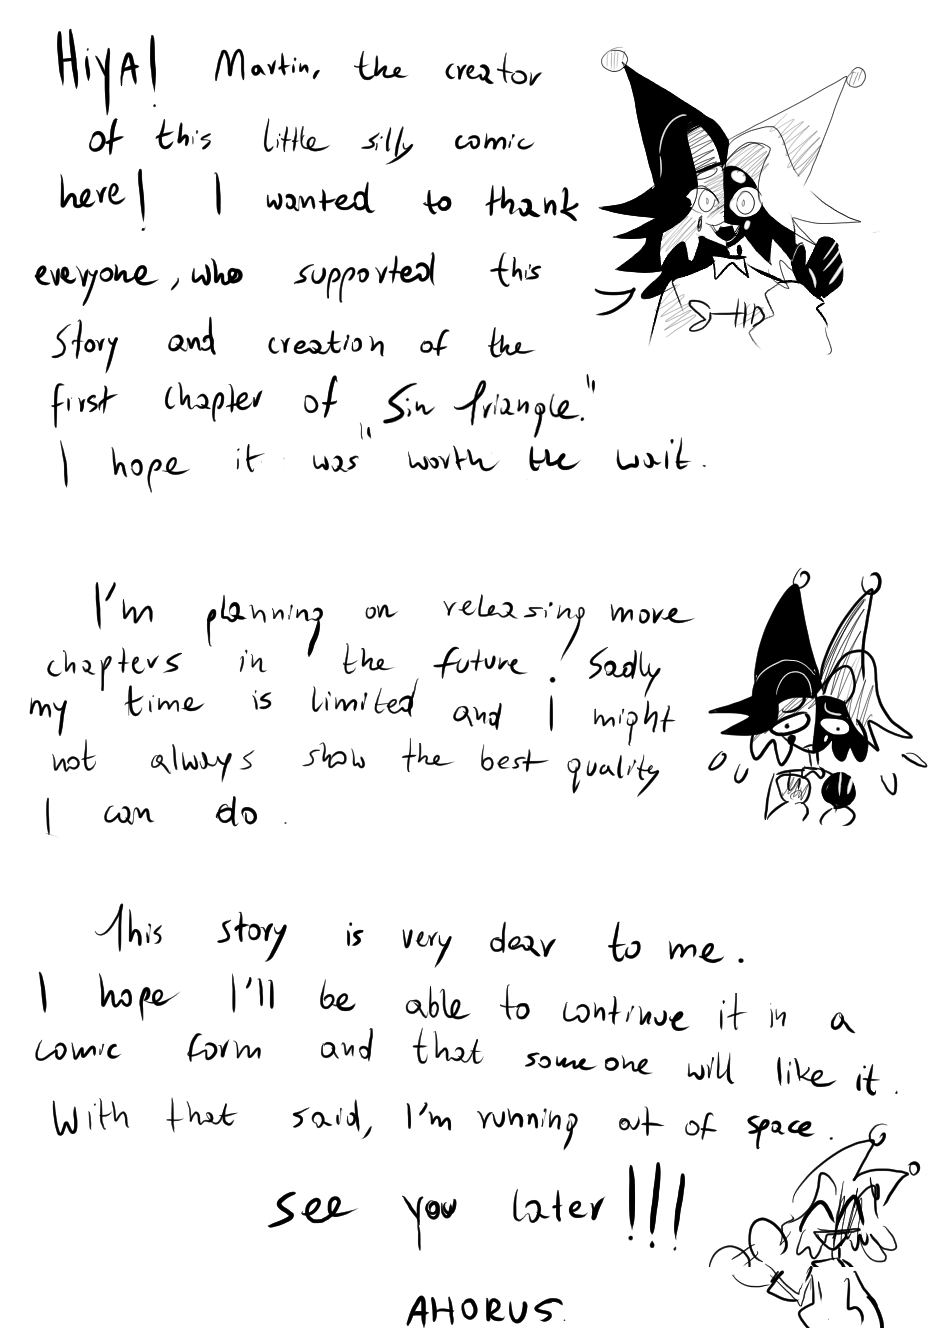 HiYA! Martin, the creator
of this little silly comic
here! I wanted to thank
everyone, who supported this
story and creation of the
first chapter of "Sin Triangle."
I hope it was worth the wait.
I'm planning on releasing more
chapters in the future! Sadly
my time is limited and I might
not always show the best quality
I can do.
This story is very dear to me.
I hope I'll be able to continue it in a
comic form and that someone will like it.
With that said, I'm running out of space.
see you later!!!
AHORUS